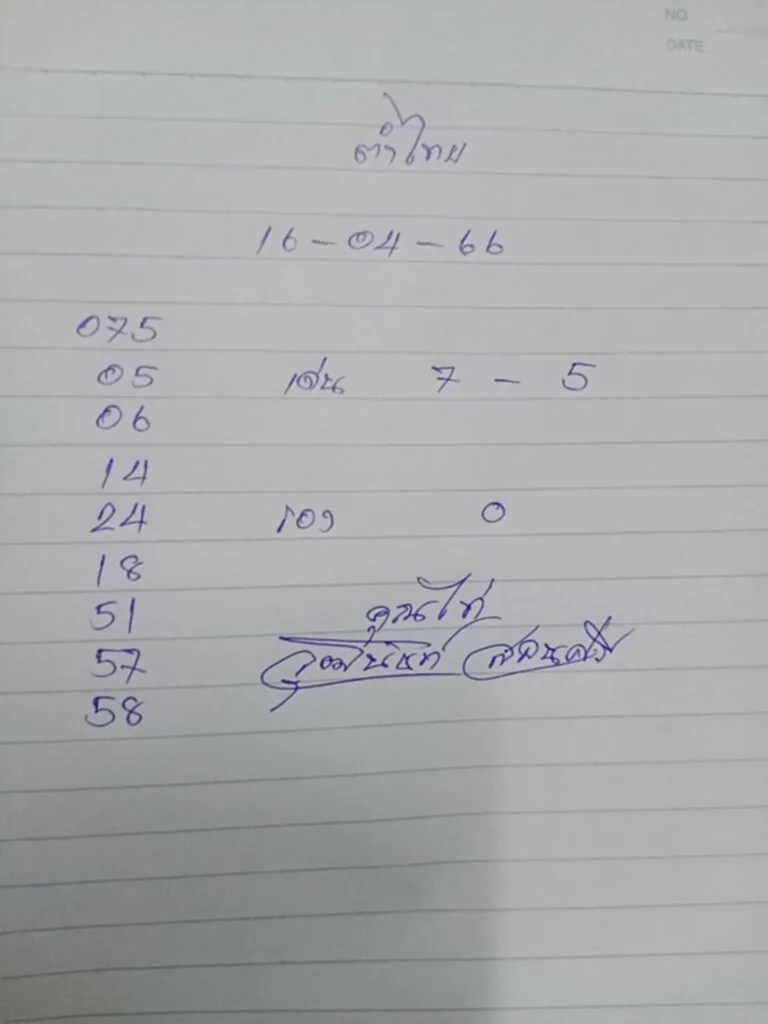 NO.
DATE
ตำไทย
16-04-66
075
05 เด่น 7 - 5
06
14
24 รอง 0
18
51
57
58